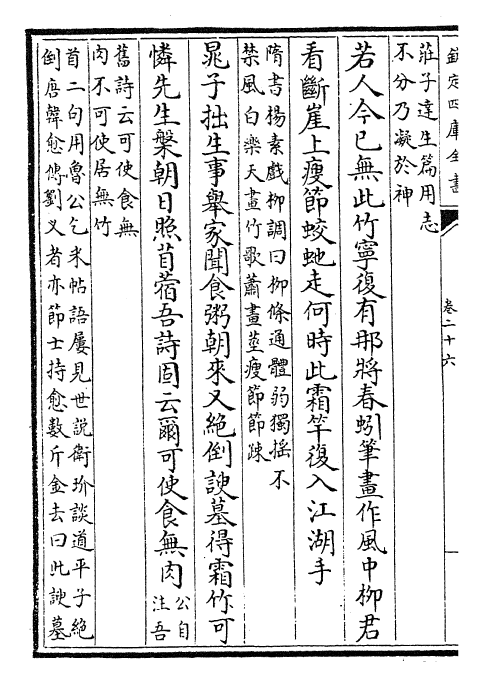 欽定四庫全書
卷二十六
莊子達生篇用志
不分乃凝於神
若人今已無此竹寧復有那將春蚓筆畫作風中柳君
看斷崖上瘦節蛟虵走何時此霜竿復入江湖手
隋書楊素戲柳調曰柳條通體弱獨搖不
禁風白樂天畫竹歌蕭畫莖瘦節節疎
晁子拙生事舉家聞食粥朝來又絕倒諛墓得霜竹可
憐先生槃朝日照苜蓿吾詩固云爾可使食無肉
公自
注吾
舊詩云可使食無
肉不可使居無竹
首二句用魯公乞米帖語屢見世說衛玠談道平子絕
倒唐韓愈傳劉义者亦節士持愈數斤金去曰此諛墓